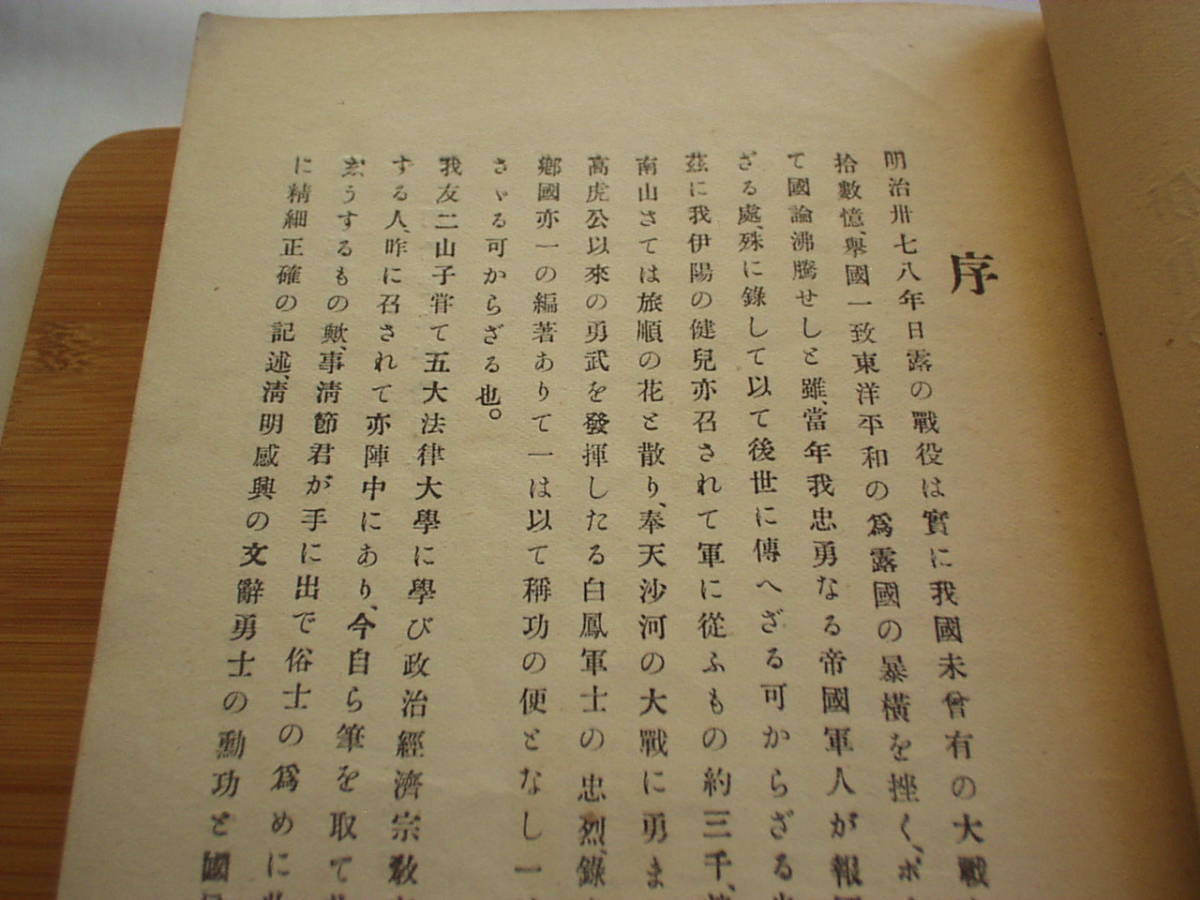 序
明治卅七八年日露の戰役は實に我國未曾有の大戰
拾數憶、舉國一致東洋平和の爲露國の暴橫を挫く、ポ
て國論沸騰せしと雖、當年我忠勇なる帝國軍人が報
ざる處、殊に錄して以て後世に傳へざる可からざる
茲に我伊陽の健兒亦召されて軍に從ふもの約三千、
南山さては旅順の花と散り、奉天沙河の大戰に勇ま
高虎公以來の勇武を發揮したる白鳳軍士の忠烈、錄
鄕國亦一の編著ありて一は以て稱功の便となし一
さゝる可からざる也。
我友二山子甞て五大法律大學に學び政治經濟宗敎
する人、昨に召されて亦陣中にあり、今自ら筆を取て
うするもの歟、事淸節君が手に出で俗士の爲めに
に精細正確の記述、淸明感興の文辭勇士の勳功と國